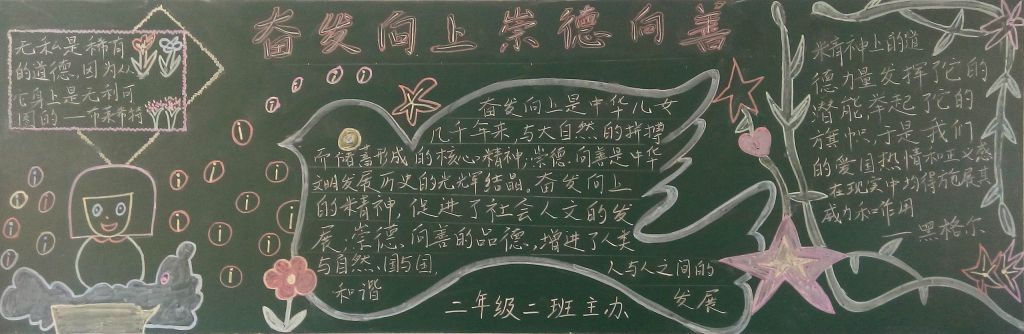 奋发向上崇德向善
无私是稀有
的道德,因为从
它身上是无利可
图的——布莱希特
奋发向上是中华儿女
几千年来,与大自然的拼搏
而储蓄形成的核心精神;崇德、向善是中华
文明发展历史的光辉结晶。奋发向上
的米精神,促进了社会人文的发
展;崇德、向善的品德,增进了人类
与自然、国与国、
人与人之间的
和谐
发展
二年级二班主办
米青神上的道
德力量发挥了它的
潜能,举起了它的
旗帜,于是我们
的爱国热情和正义感
在现实中均得施展其
威力和作用
——黑格尔